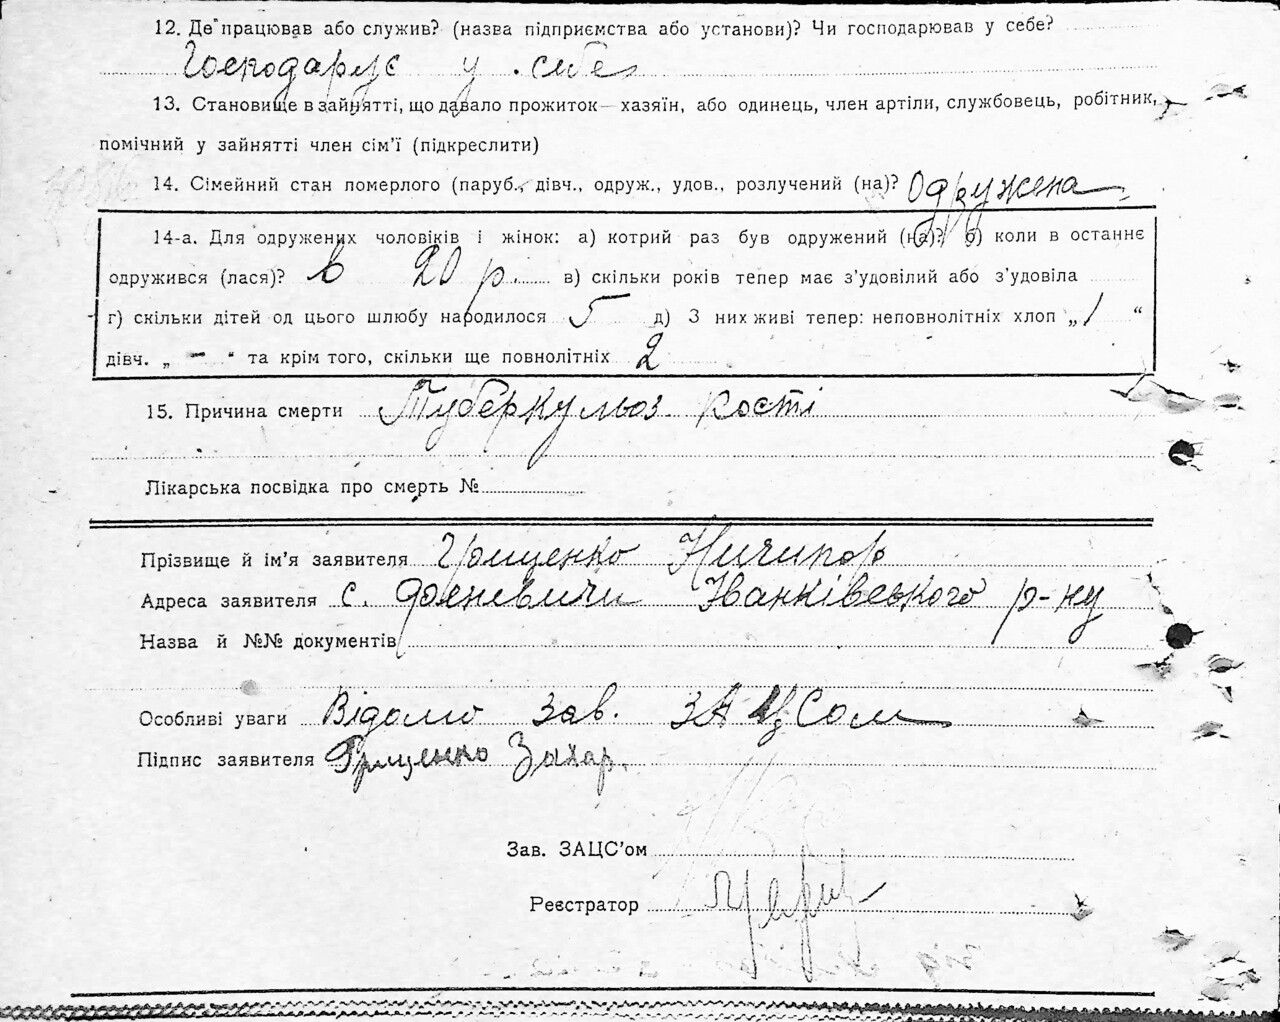 12. Де працював або служив? (назва підприємства або установи)? Чи господарював у себе?
Господарує у себе
13. Становище в зайнятті, що давало прожиток — хазяїн, або одинець, член артіли, службовець, робітник,
помічний у зайнятті член сім’ї (підкреслити)
14. Сімейний стан померлого (паруб., дівч., одруж., удов., розлучений (на)? Одружена
14-а. Для одружених чоловіків і жінок: а) котрий раз був одружений (на)? б) коли в останнє
одружився (лася)? в 20 р. в) скільки років тепер має з’удовілий або з’удовіла
г) скільки дітей од цього шлюбу народилося 5 д) З них живі тепер: неповнолітніх хлоп „ 1 “
дівч. „ – “ та крім того, скільки ще повнолітніх 2
15. Причина смерти Туберкульоз кості
Лікарська посвідка про смерть №
Прізвище й ім’я заявителя Грищенко Ничипор
Адреса заявителя с. Іванківського р-ну
Назва й №№ документів
Особливі уваги Відомо зав. ЗАЦСом
Підпис заявителя Грищенко Захар.
Зав. ЗАЦС’ом
Реєстратор